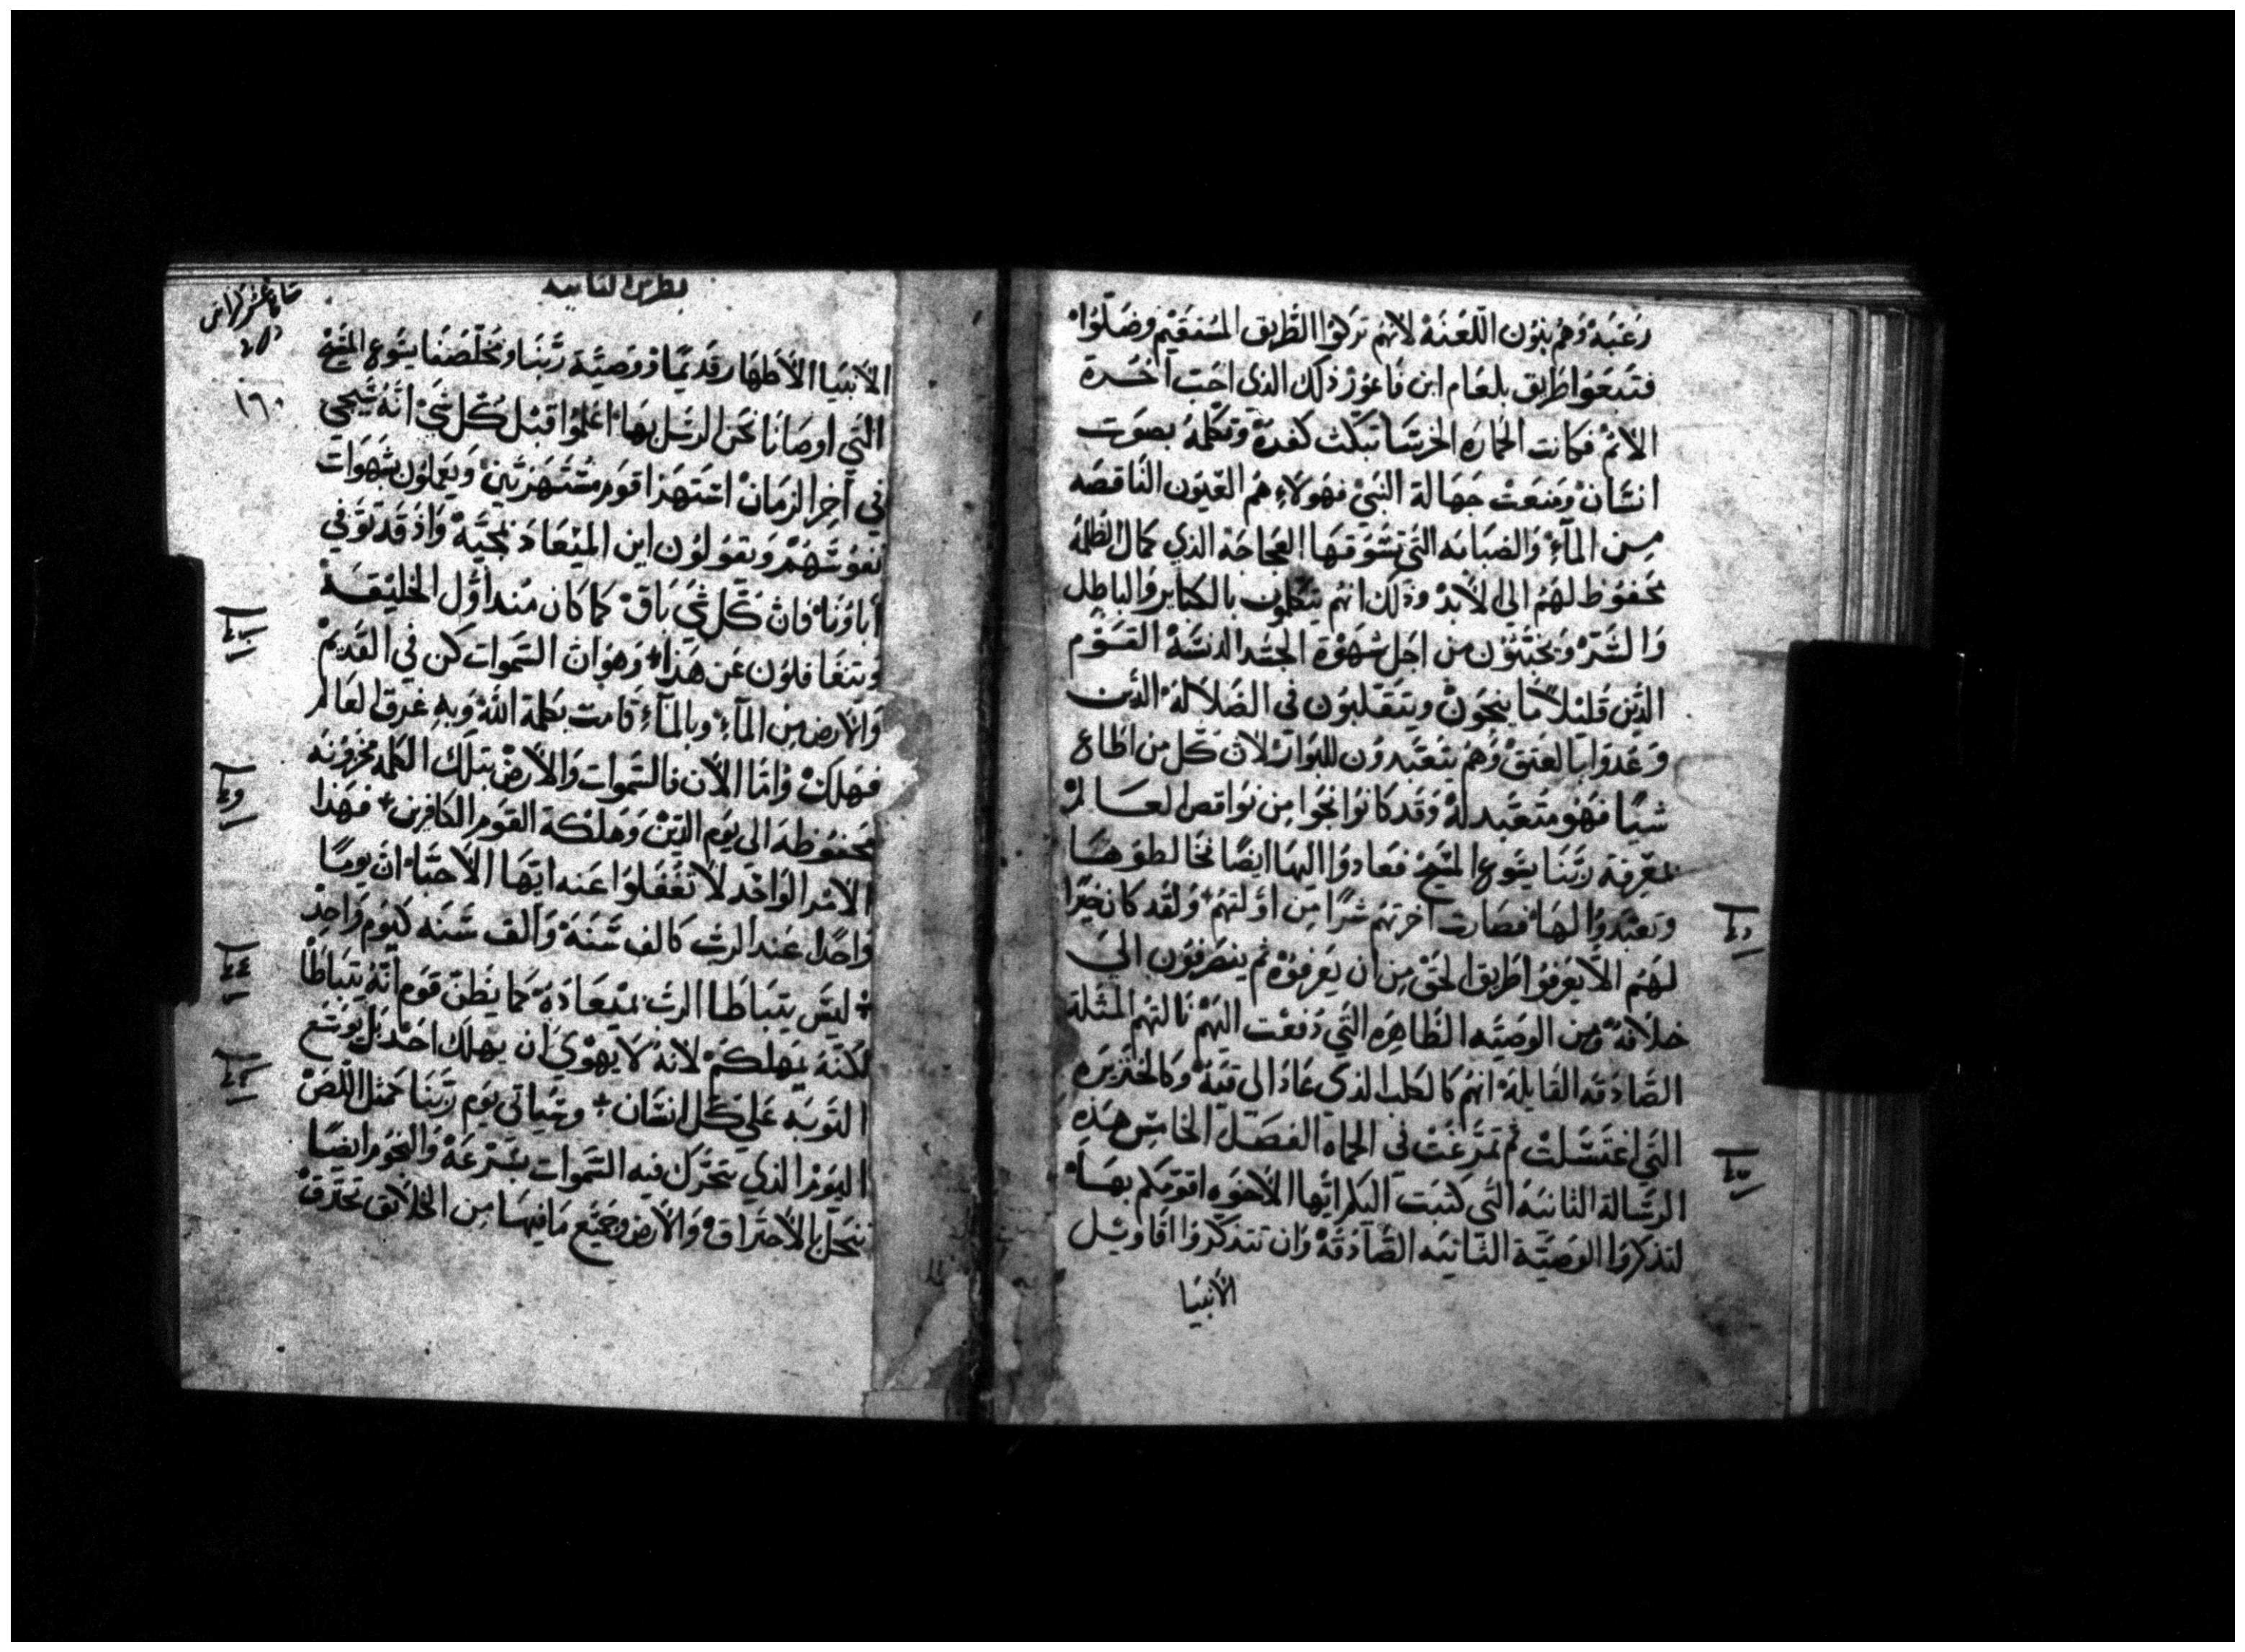 رغبة وهم بنون اللعنة لانهم تركوا الطريق المستقيم وضلوا
فتبعوا طريق بلعام ابن فاعور ذلك الذي احب اخرة
الاثم فكانت الحماره الخرسا تبكت كفره وتكلمه بصوت
انسان ومنعت جهالة النبي فهولاء هم العيون الناقصه
من الماء والضبابه التي تسوقها العجاجة الذي كمال الظلمة
محفوظ لهم الى الابد وذلك انهم يتكلمون بالكباير والباطل
والشر ويخبثون من اجل شهوة الجسد الدنسة القوم
الذين قليلا ما ينجون ويتقلبون في الضلالة الذين
وعدوا بالعتق وهم يتعبدون للبوار لان كل من اطاع
شيا فهو متعبد له وقد كانوا نجوا من نواقص العالم
بمعرفة ربنا يسوع المسيح فعادوا اليها ايضا مخالطوها
وتعبدوا لها فصارت اخرتهم شرا من اولتهم ولقد كان خيرا
لهم الا يعرفوا طريق الحق من ان يعرفوه ثم ينصرفون الى
خلافه ومن الوصيه الطاهره التي دفعت اليهم نالتهم المثلة
الصادقه القايلة انهم كالكلب الذي عاد الى قيه وكالخنزيره
التي اغتسلت ثم تمرغت في الحماه الفصل الخامس هذه
الرسالة الثانيه التي كتبت اليكم ايها الاخوه اقومكم بها
لتذكروا الوصية الثانيه الصادقة وان تتذكروا اقاويل
الانبيا
بطرس الثانيه
١٦٠
الانبيا الاطهار قديما ووصية ربنا ومخلصنا يسوع المسيح
التي اوصانا نحن الرسل بها اعلموا قبل كل شي انه سيجي
في اخر الزمان استهزا قوم مستهزئين ويعملون بشهوات
نفوسهم ويقولون اين الميعاد بمجيه واذ قد توفي
اباونا فان كل شي باق كما كان منذ اول الخليقة
ويتغافلون عن هذا وهو ان السموات كن في القديم
والارض من الماء وبالماء قامت بكلمة الله وبه غرق العالم
فهلك واما الان فالسموات والارض بتلك الكلمه مخزونه
محفوظه الى يوم الدين وهلكة القوم الكافرين فهذا
الامر الواحد لا تغفلوا عنه ايها الاحبا ان يوما
واحدا عند الرب كالف سنة والف سنه كيوم واحد
ليس يتباطا الرب بميعاده كما يظن قوم انه يتباطا
لكنه يمهلكم لانه لا يهوى ان يهلك احد بل يوسع
التوبه علي كل انسان وسياتي يوم ربنا كمثل اللص
اليوم الذي تتحرك فيه السموات بسرعة والنجوم ايضا
تنحل بالاحتراق والارض وجميع ما فيها من الخلايق تحترق